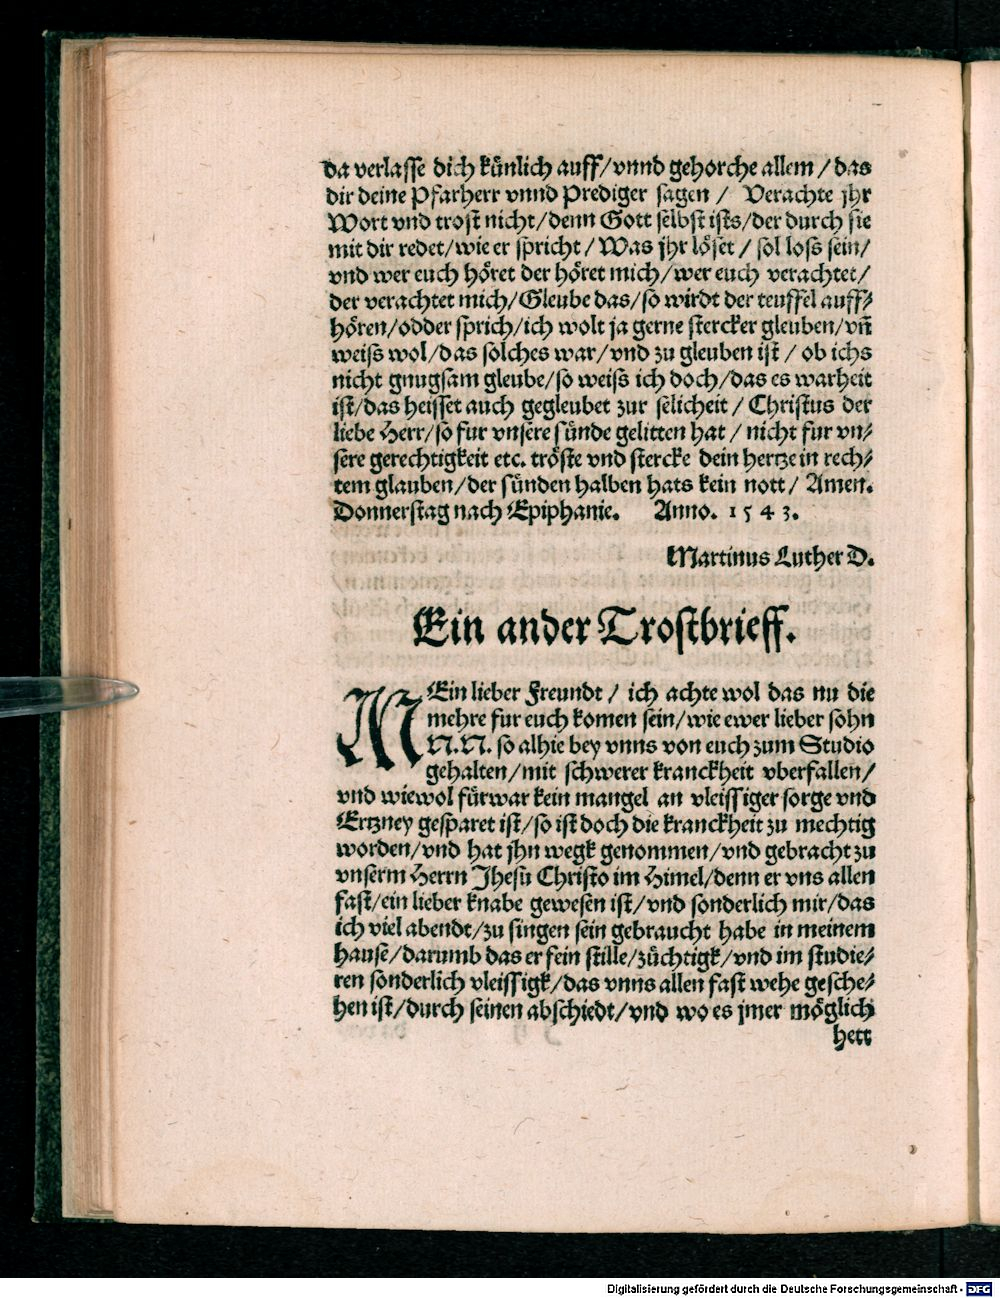 da verlasse dich künlich auff/vnnd gehorche allem/das
dir deine Pfarherr vnnd Prediger sagen / Verachte jhr
Wort vnd trost nicht/denn Gott selbst ists/der durch sie
mit dir redet/wie er spricht/Was jhr löset/sol loss sein/
vnd wer euch höret der höret mich/wer euch verachtet/
der verachtet mich/Gleube das/so wirdt der teuffel auff-
hören/odder sprich/ich wolt ja gerne stercker gleuben/vn̄
weiss wol/das solches war/vnd zu gleuben ist / ob ichs
nicht gnugsam gleube/so weiss ich doch/das es warheit
ist/das heisset auch gegleubet zur selicheit / Christus der
liebe Herr/so fur vnsere sünde gelitten hat / nicht fur vn-
sere gerechtigkeit etc. tröste vnd stercke dein hertze in rech-
tem glauben/der sünden halben hats kein nott/ Amen.
Donnerstag nach Epiphanie. Anno. 1543.
Martinus Luther D.
Ein ander Trostbrieff.
MEin lieber Freundt / ich achte wol das nu die
mehre fur euch komen sein/wie ewer lieber sohn
N.N. so alhie bey vnns von euch zum Studio
gehalten/mit schwerer kranckheit vberfallen/
vnd wiewol fürwar kein mangel an vleissiger sorge vnd
Ertzney gesparet ist/so ist doch die kranckheit zu mechtig
worden/vnd hat jhn wegk genommen/vnd gebracht zu
vnserm Herrn Jhesu Christo im Himel/denn er vns allen
fast/ein lieber knabe gewesen ist/vnd sonderlich mir/das
ich viel abendt/zu singen sein gebraucht habe in meinem
hause/darumb das er fein stille/züchtigk/vnd im studie-
ren sonderlich vleissigk/das vnns allen fast wehe gesche-
hen ist/durch seinen abschiedt/vnd wo es jmer möglich
hett
Digitalisierung gefördert durch die Deutsche Forschungsgemeinschaft - DFG